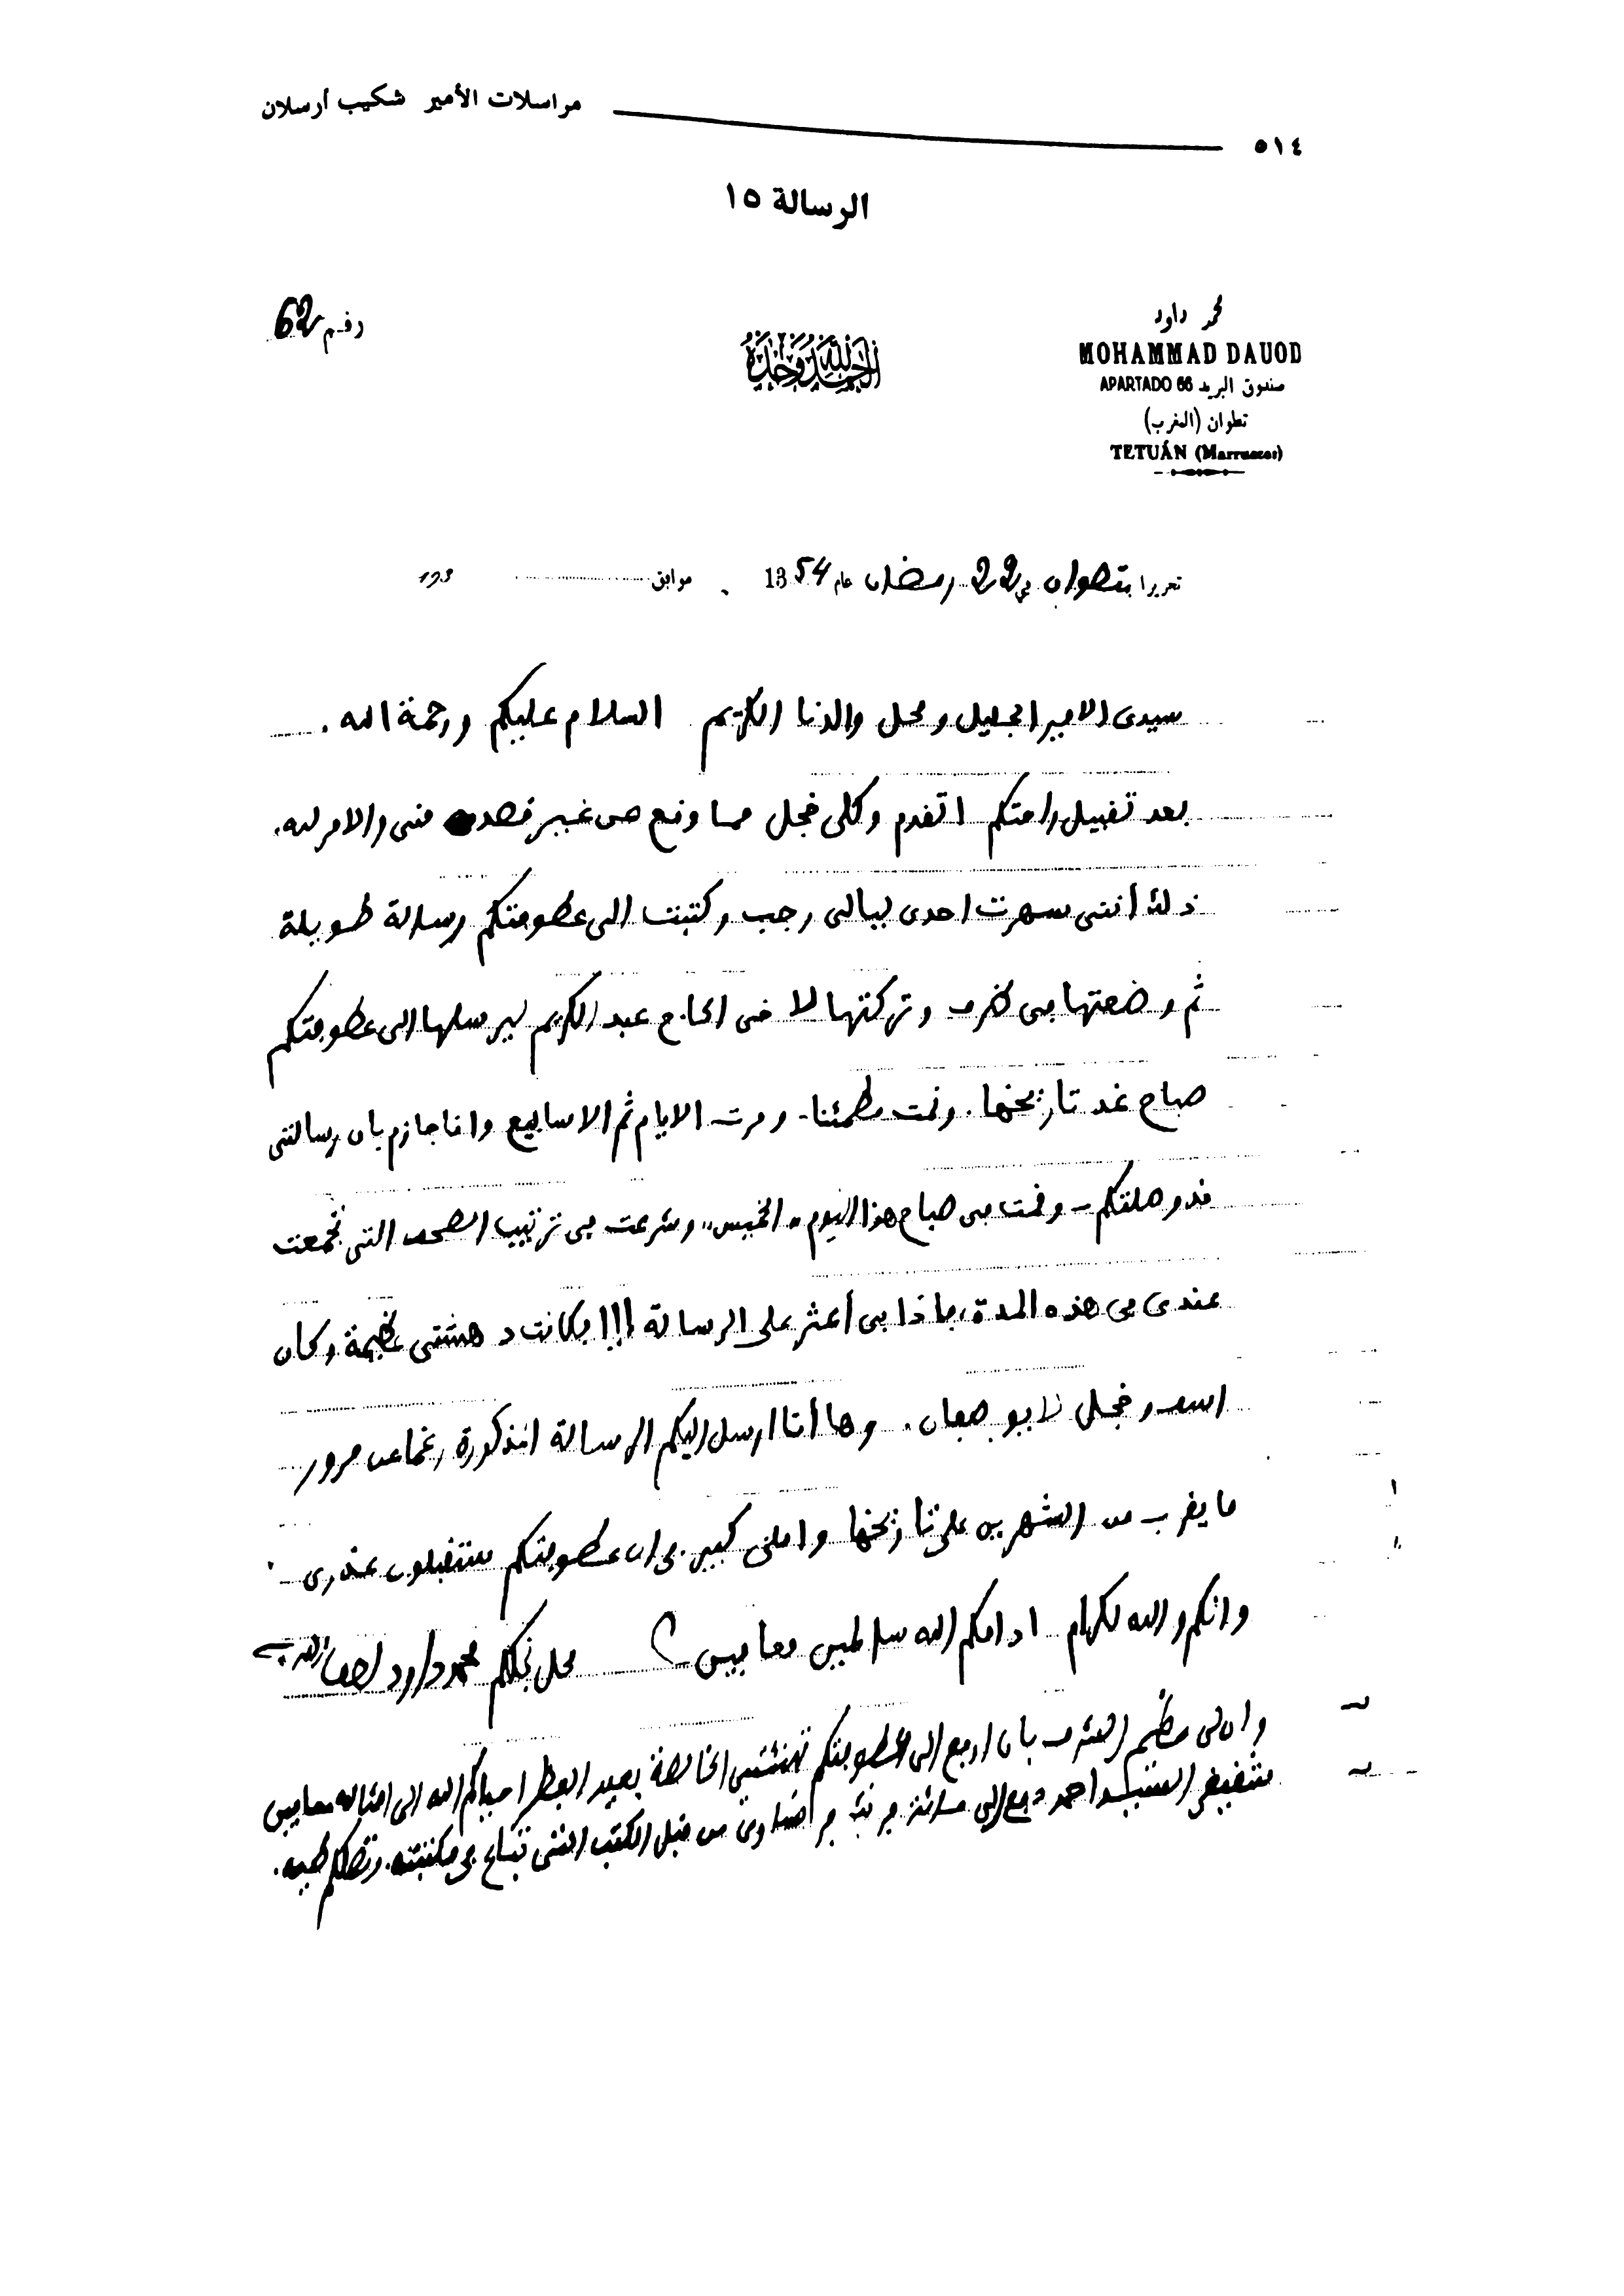 مراسلات الأمير شكيب أرسلان
٥١٤
الرسالة ١٥
رقم 62
الحمد لله وحده
محمد داود
MOHAMMAD DAUOD
صندوق البريد APARTADO 66
تطوان (المغرب)
TETUÁN (Marruecos)
تحريرا بتطوان في 22 رمضان عام 1354 موافق 193
سيدى الامير الجليل ومحل والدنا الكريم السلام عليكم ورحمة الله.
بعد تقبيل راحتكم اتقدم وكلى خجل مما وقع من غير قصد منى والامر لله.
ذلك أننى سهرت احدى ليالى رجب وكتبت الى عطوفتكم رسالة طويلة
ثم وضعتها فى ظرف وتركتها للاخ الحاج عبد الكريم ليرسلها الى عطوفتكم
صباح غد تاريخها. ونمت مطمئنا - ومرت الايام ثم الاسابيع وانا جازم بان رسالتى
قد وصلتكم - وقمت فى صباح هذا اليوم "الخميس" وشرعت فى ترتيب الصحف التى تجمعت
عندى فى هذه المدة، فاذا بى أعثر على الرسالة !!! فكانت دهشتى عظيمة وكان
اسفى وخجلى لا يوصفان. وها أنا ارسل اليكم الرسالة المذكورة رغما عن مرور
ما يقرب من الشهرين على تاريخها واملى كبير فى ان عطوفتكم ستقبلون عذرى -
وانكم والله لكرام ادامكم الله سالمين معافين محل نجلكم محمد داود لطف الله به
وان لى عظيم الشرف بان ارفع الى عطوفتكم تهنئتى الخالصة بعيد الفطر احياكم الله الى امثاله معافين
شقيقى السيد احمد دفع الى مائة فرنك فرانساوى من قبل الكتب التى تباع فى مكتبته. وتصلكم طيه.